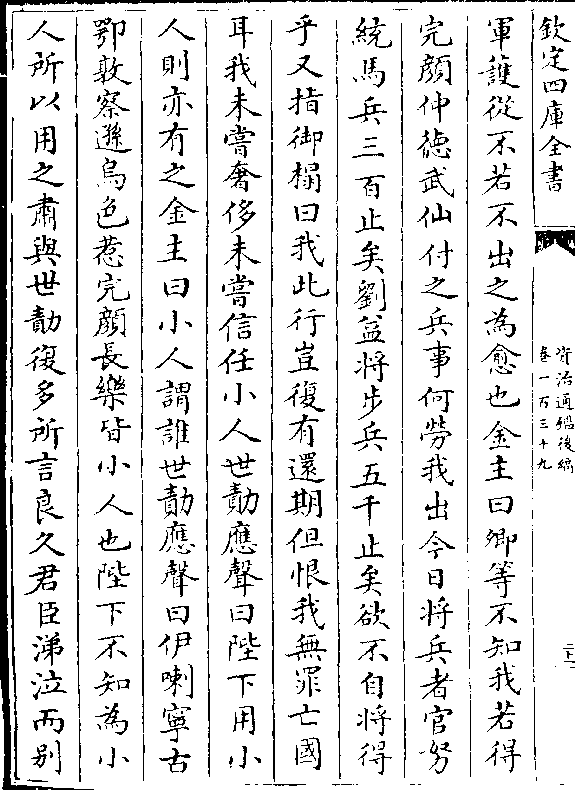 欽定四庫全書
資治通鑑後編
卷一百三十九
軍護從不若不出之為愈也金主曰卿等不知我若得
完顔仲徳武仙付之兵事何勞我出今日將兵者官努
統馬兵三百止矣劉益將步兵五千止矣欲不自將得
乎又指御榻曰我此行豈復有還期但恨我無罪亡國
耳我未嘗奢侈未嘗信任小人世勣應聲曰陛下用小
人則亦有之金主曰小人謂誰世勣應聲曰伊喇寧古
鄂敦察遜烏色惹完顔長樂皆小人也陛下不知為小
人所以用之肅與世勣復多所言良久君臣涕泣而别